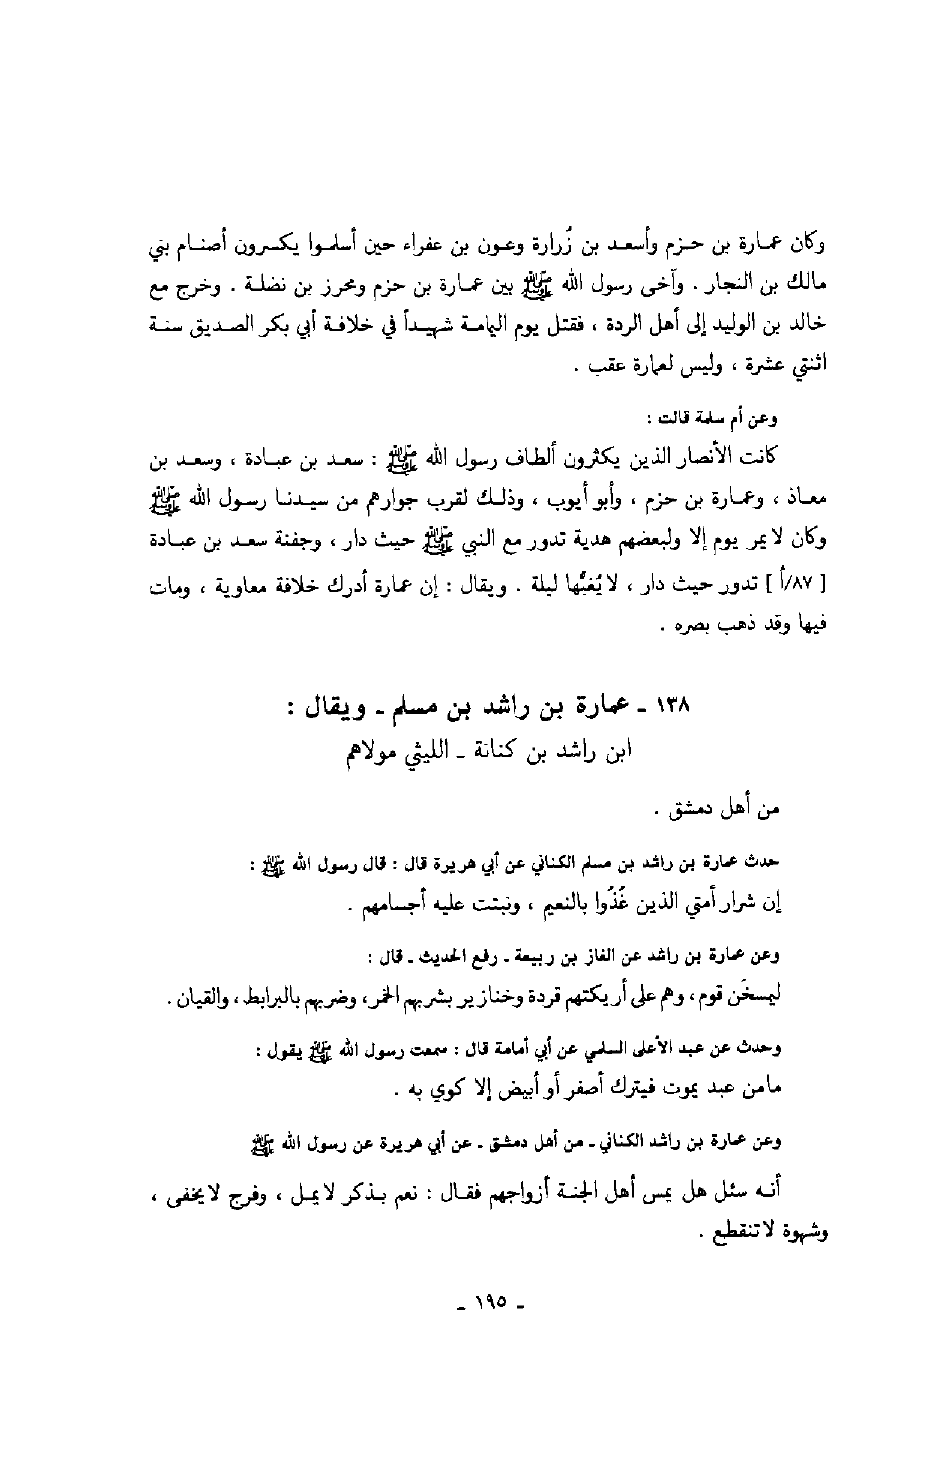 وكان عمارة بن حزم وأسعد بن زُرارة وعون بن عفراء حين أسلموا يكسرون أصنام بني
مالك بن النجار . وآخى رسول الله ﷺ بين عمارة بن حزم ومحرز بن نضلة . وخرج مع
خالد بن الوليد إلى أهل الردة ، فقتل يوم اليمامة شهيداً في خلافة أبي بكر الصديق سنة
اثنتي عشرة ، وليس لعمارة عقب .
وعن أم سلمة قالت :
كانت الأنصار الذين يكثرون ألطاف رسول الله ﷺ : سعد بن عبادة ، وسعد بن
معاذ ، وعمارة بن حزم ، وأبو أيوب ، وذلك لقرب جوارهم من سيدنا رسول الله ﷺ
وكان لا يمر يوم إلا ولبعضهم هدية تدور مع النبي ﷺ حيث دار ، وجفنة سعد بن عبادة
[ ٨٧/أ ] تدور حيث دار ، لا يُغبُّها ليلة . ويقال : إن عمارة أدرك خلافة معاوية ، ومات
فيها وقد ذهب بصره .
١٣٨ ـ عمارة بن راشد بن مسلم ـ ويقال :
ابن راشد بن كنانة ـ الليثي مولاهم
من أهل دمشق .
حدث عمارة بن راشد بن مسلم الكناني عن أبي هريرة قال : قال رسول الله ﷺ :
إن شرار أمتي الذين غُذُوا بالنعيم ، ونبتت عليه أجسامهم .
وعن عمارة بن راشد عن الغاز بن ربيعة ـ رفع الحديث ـ قال :
ليمسخَن قوم ، وهم على أريكتهم قردة وخنازير بشربهم الخمر، وضربهم بالبرابط، والقيان .
وحدث عن عبد الأعلى السلمي عن أبي أمامة قال : سمعت رسول الله ﷺ يقول :
مامن عبد يموت فيترك أصفر أو أبيض إلا كوي به .
وعن عمارة بن راشد الكناني ـ من أهل دمشق ـ عن أبي هريرة عن رسول الله ﷺ
أنه سئل هل يمس أهل الجنة أزواجهم فقال : نعم بذكر لا يمل ، وفرج لا يخفى ،
وشهوة لا تنقطع .
ـ ١٩٥ ـ